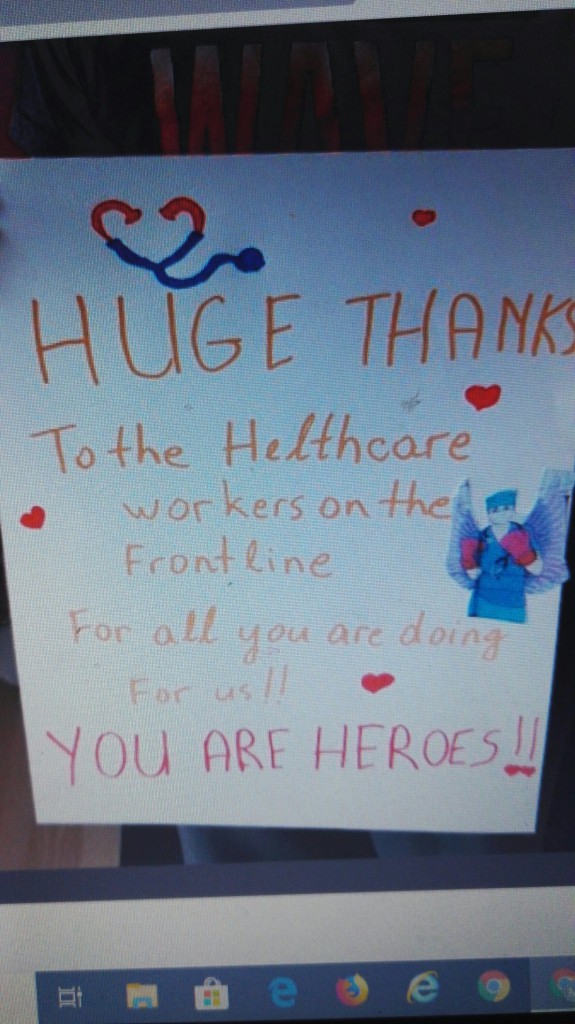 WAVE
HUGE THANKS
To the Helthcare
workers on the
Frontline
For all you are doing
For us!!
YOU ARE HEROES!!